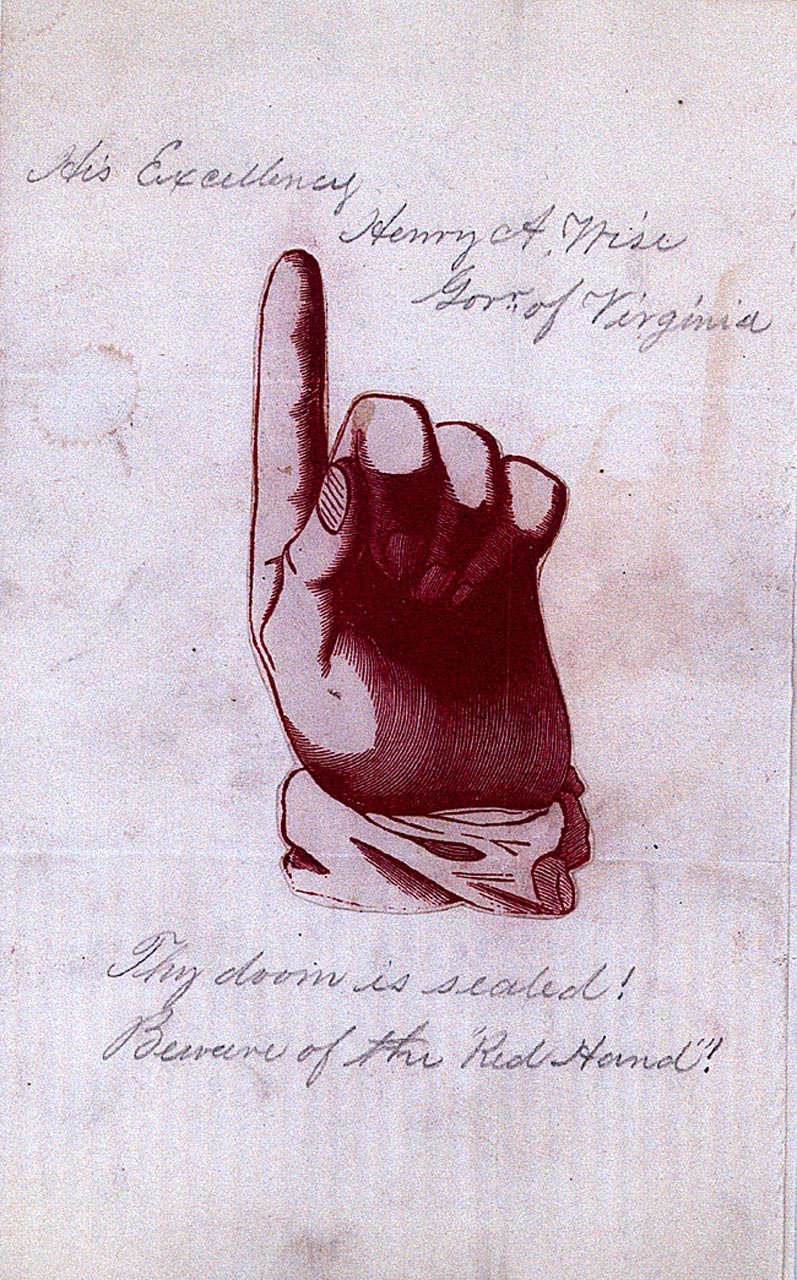 His Excellency
Henry A. Wise
Govr. of Virginia
Thy doom is sealed!
Beware of the "Red Hand"!